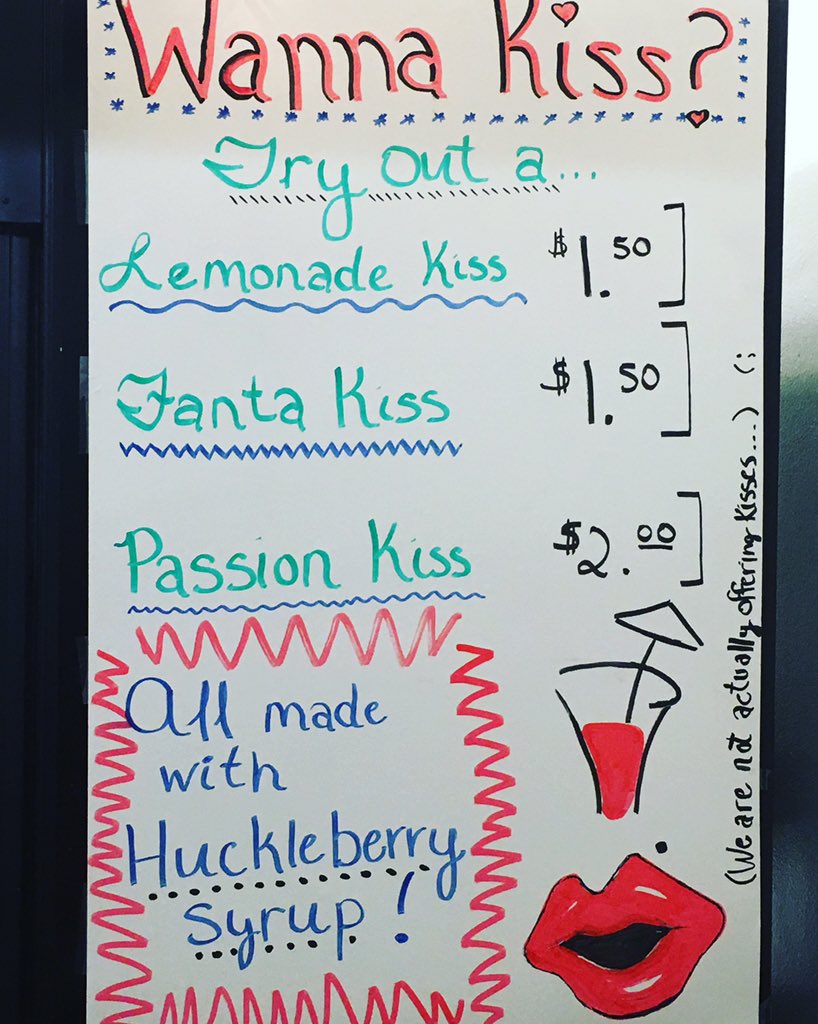 Wanna Kiss?
Try out a...
Lemonade Kiss $1.50]
Fanta Kiss $1.50]
Passion Kiss $2.00]
All made
with
Huckleberry
syrup!
(We are not actually offering kisses....) (: